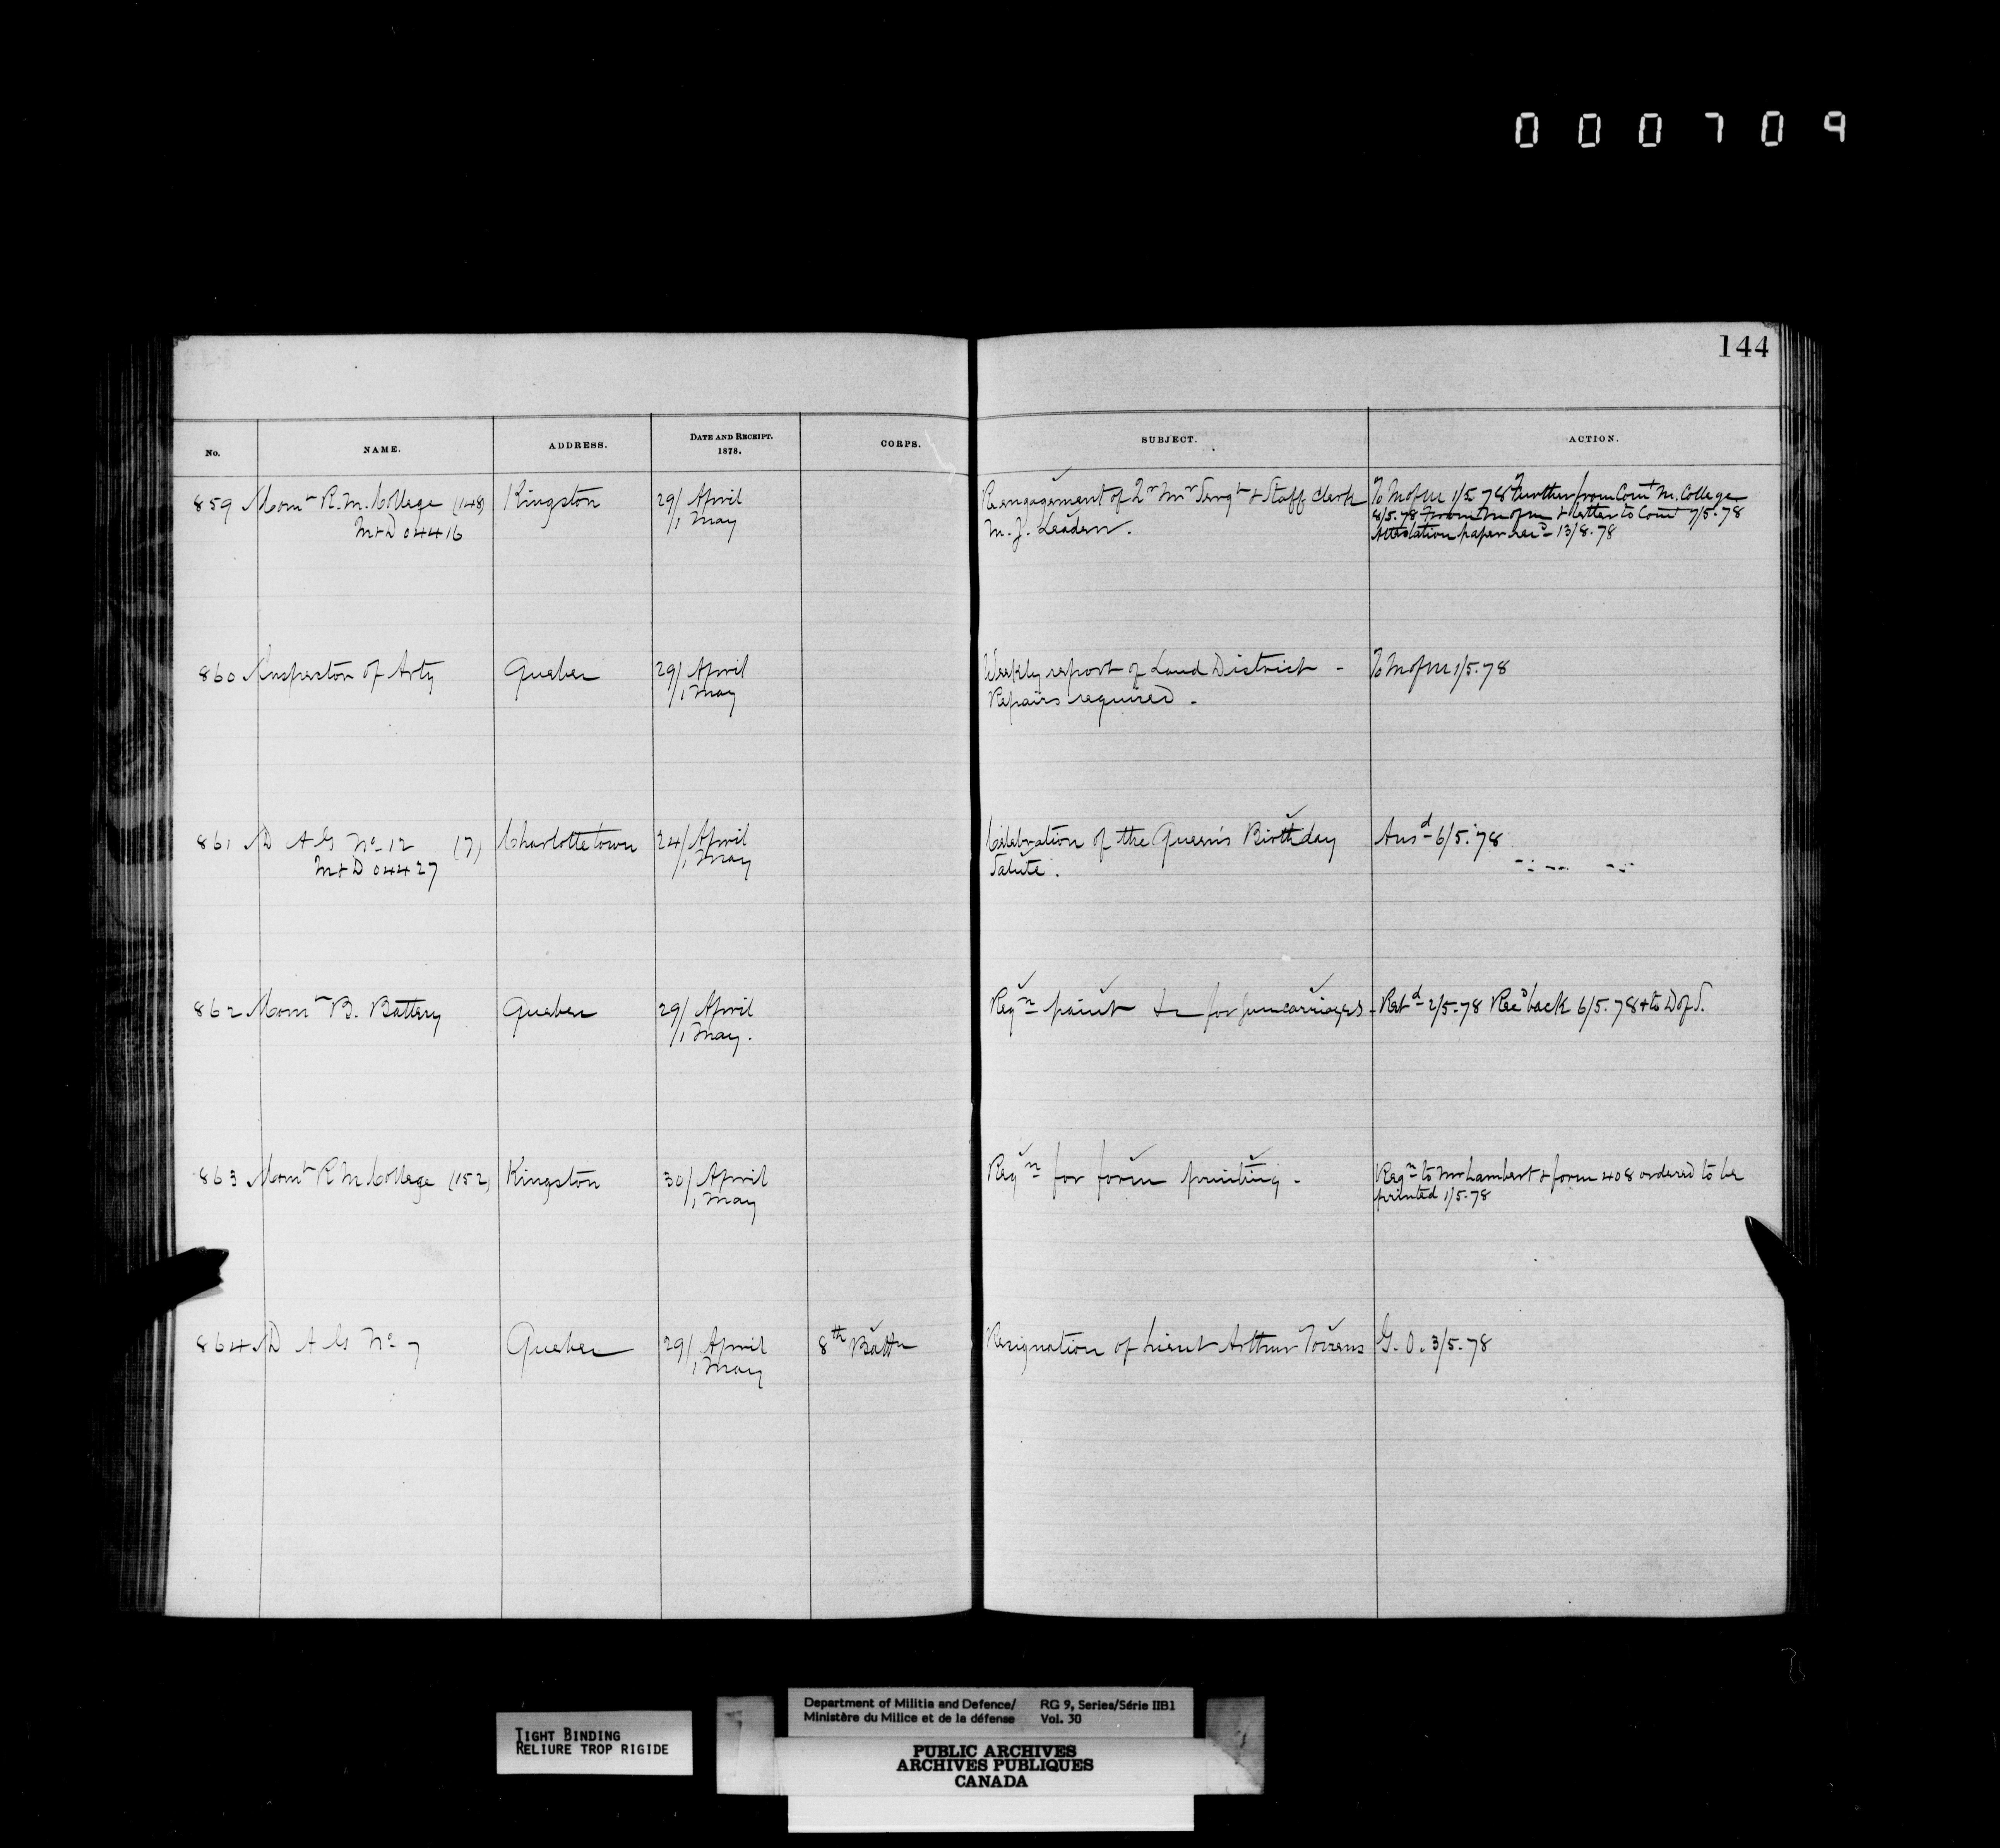 000709
144
No.
NAME.
ADDRESS.
DATE AND RECEIPT.
1878.
CORPS.
SUBJECT.
ACTION.
859 Comt R.M. College (148) Kingston 29/ April Reengagement of Qr Mr Sergt & Staff Clerk To M of M 1/5.78 Further from Comt M. College
M&D 04416 /1 May M. J. Leaden. 8/5.78 From M of M & letter to Comt 7/5.78
Attestation paper recd 13/8.78
860 Inspector of Arty Quebec 29/ April Weekly report of Land District - To M of M 1/5.78
/1 May Repairs required.
861 D A G No 12 (7) Charlottetown 24/ April Celebration of the Queen's Birthday Ansd 6/5.78
M&D 04427 /1 May Salute.
862 Comt B. Battery Quebec 29/ April Reqn paint &c for gun carriages - Retd 2/5.78 Recd back 6/5.78 & to D of S.
/1 May.
863 Comt R M College (152) Kingston 30/ April Reqn for form printing. Reqn to Mr Lambert & form 408 ordered to be
/1 May printed 1/5.78
864 D A G No 7 Quebec 29/ April 8th Battn Resignation of Lieut Arthur Torrens G. O. 3/5.78
/1 May
TIGHT BINDING
RELIURE TROP RIGIDE
Department of Militia and Defence/ RG 9, Series/Série IIB1
Ministère du Milice et de la défense Vol. 30
PUBLIC ARCHIVES
ARCHIVES PUBLIQUES
CANADA